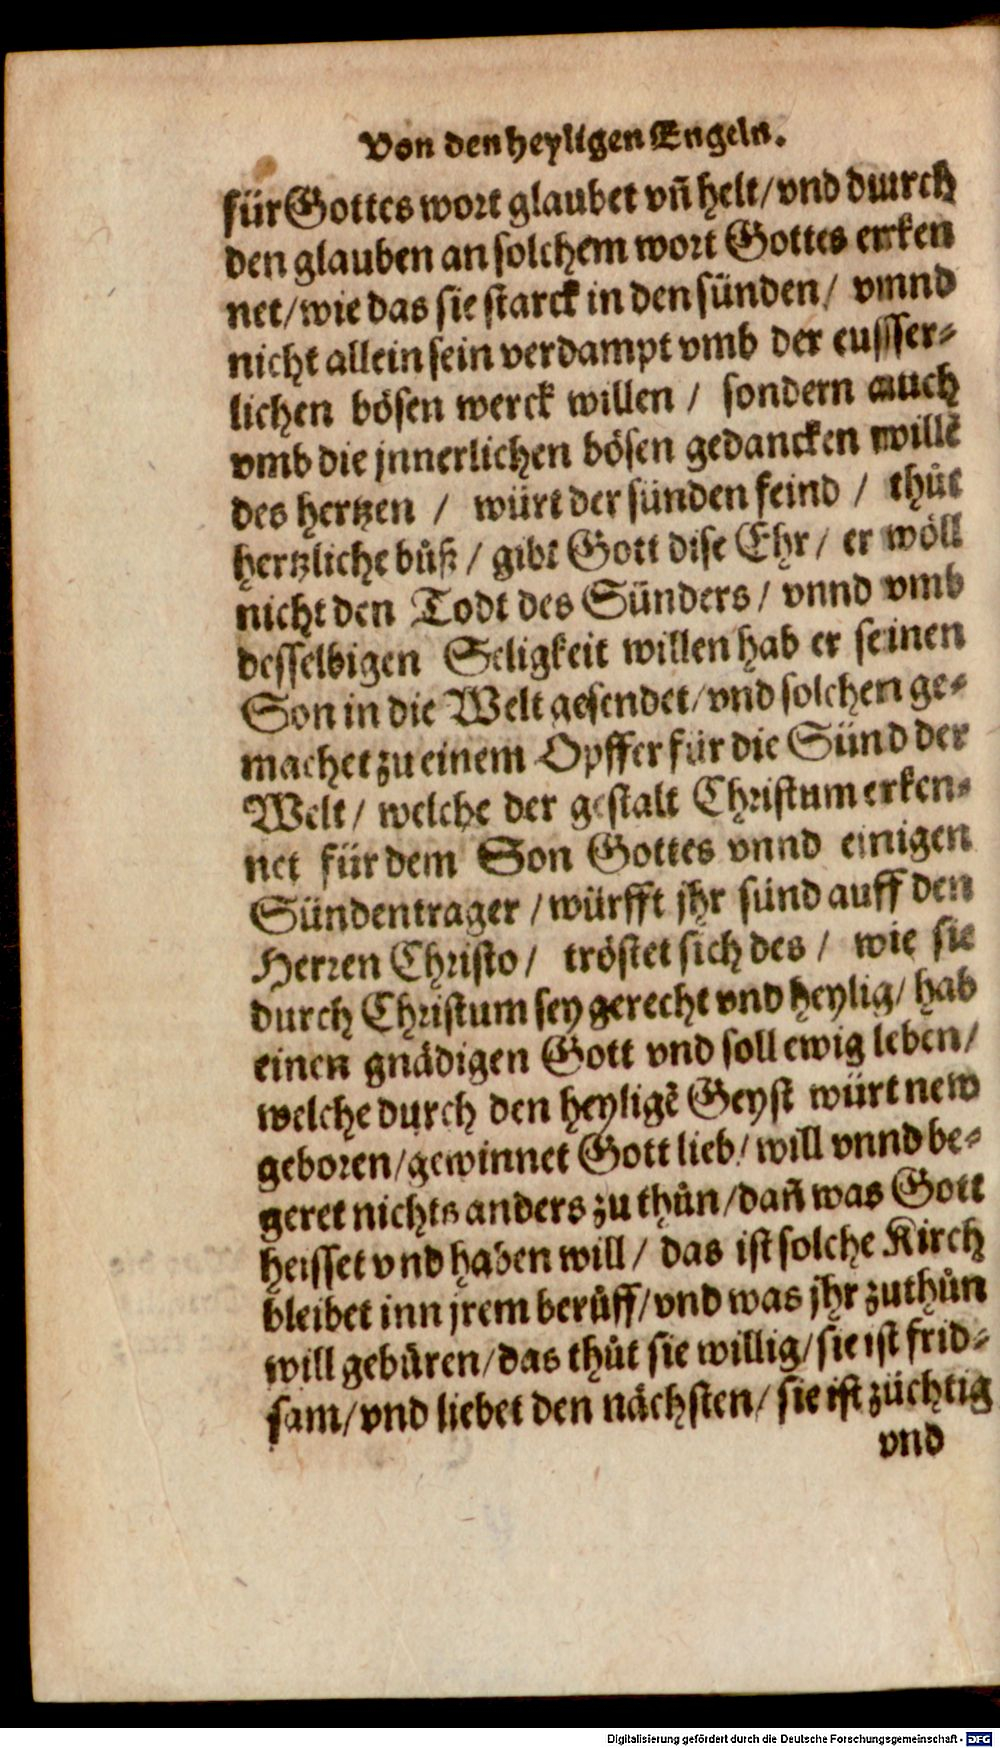 Von den heyligen Engeln.
für Gottes wort glaubet vñ helt/ vnd durch
den glauben an solchem wort Gottes erken
net/ wie das sie starck in den sünden/ vnnd
nicht allein sein verdampt vmb der eusser-
lichen bösen werck willen / sondern auch
vmb die jnnerlichen bösen gedancken willẽ
des hertzen / würt der sünden feind / thůt
hertzliche bůß / gibt Gott dise Ehr / er wöll
nicht den Todt des Sünders / vnnd vmb
desselbigen Seligkeit willen hab er seinen
Son in die Welt gesendet/ vnd solchen ge-
machet zu einem Opffer für die Sünd der
Welt / welche der gestalt Christum erken-
net für dem Son Gottes vnnd einigen
Sündentrager / würfft jhr sünd auff den
Herren Christo / tröstet sich des / wie sie
durch Christum sey gerecht vnd heylig/ hab
einen gnädigen Gott vnd soll ewig leben/
welche durch den heyligẽ Geyst würt new
geboren/ gewinnet Gott lieb/ will vnnd be-
geret nichts anders zu thůn/ dañ was Gott
heisset vnd haben will / das ist solche Kirch
bleibet inn jrem berůff/ vnd was jhr zuthůn
will gebüren/ das thůt sie willig/ sie ist frid-
sam/ vnd liebet den nächsten/ sie ist züchtig
vnd
Digitalisierung gefördert durch die Deutsche Forschungsgemeinschaft - DFG